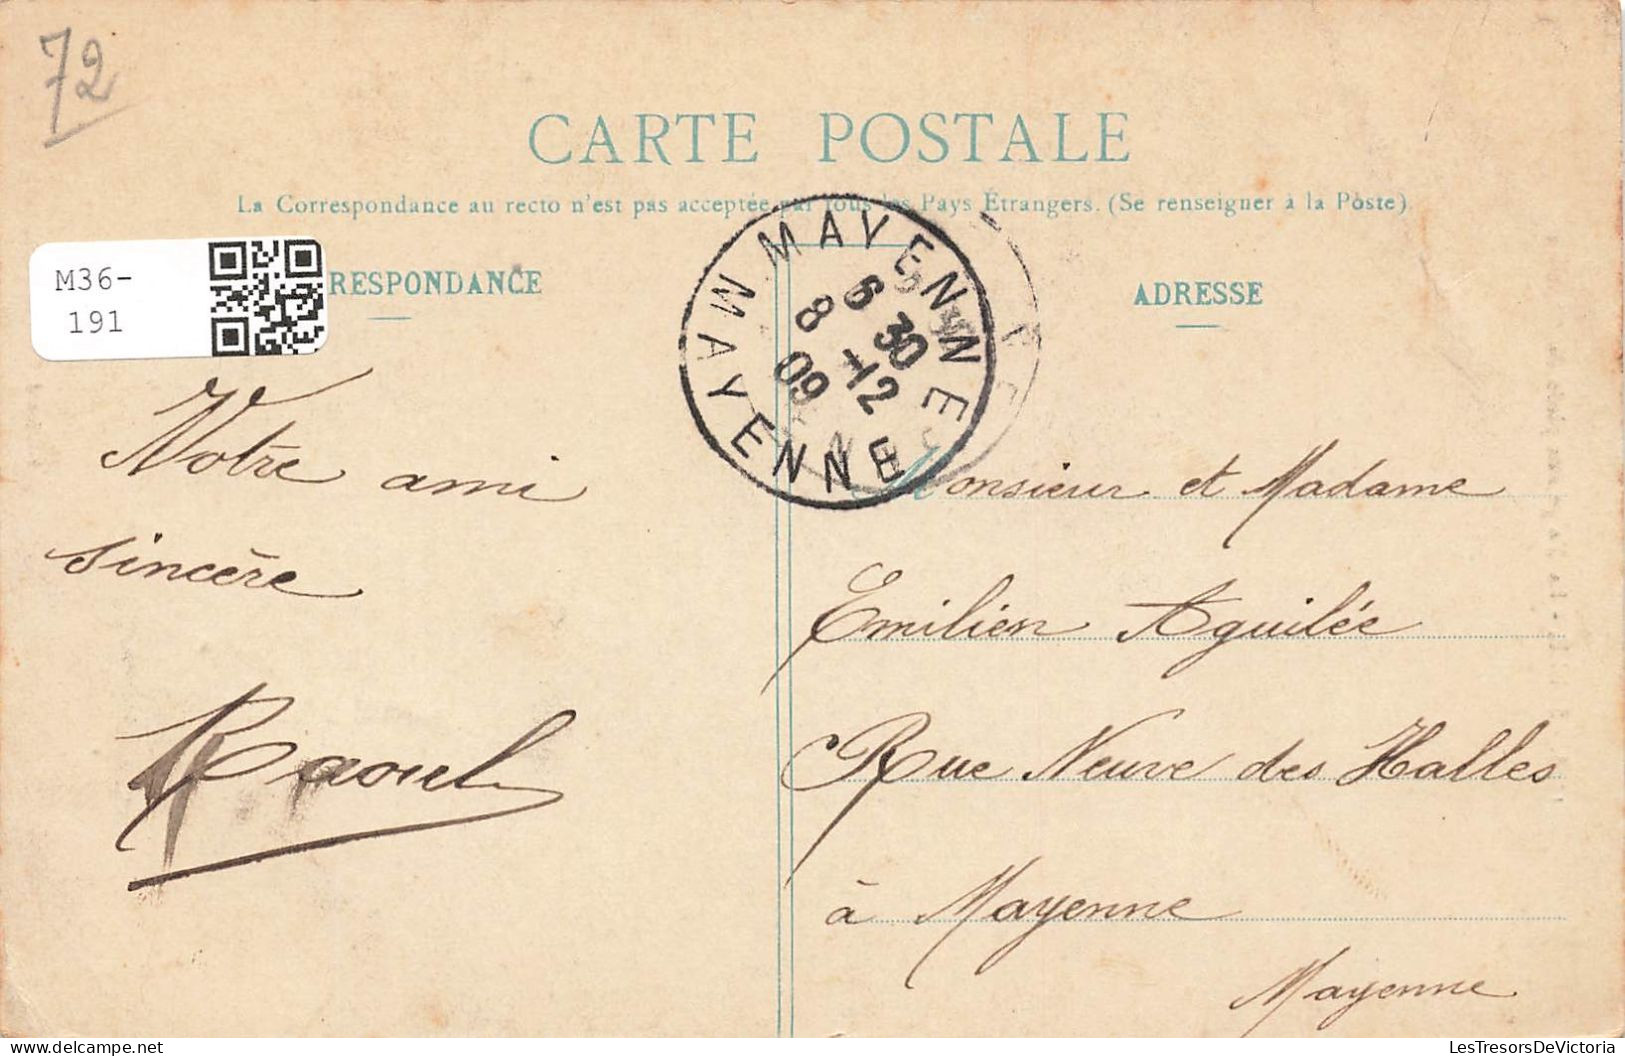 72
CARTE POSTALE
La Correspondance au recto n'est pas acceptée par tous les Pays Étrangers. (Se renseigner à la Poste)
M36-
191
RESPONDANCE
ADRESSE
MAYENNE
6 30
8 -12
09
MAYENNE
Votre ami
sincère
Raoul
Monsieur et Madame
Emilien Aguilée
Rue Neuve des Halles
à Mayenne
Mayenne
LesTresorsDeVictoria